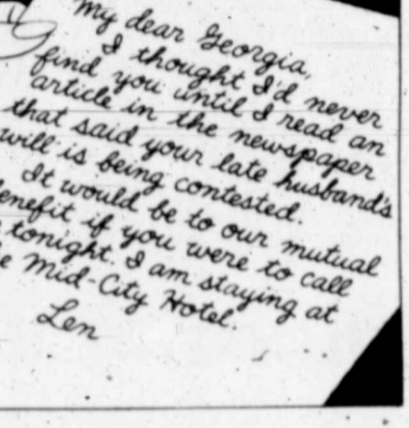 My dear Georgia,
I thought I'd never
find you until I read an
article in the newspaper
that said your late husband's
will is being contested.
It would be to our mutual
benefit if you were to call
tonight. I am staying at
Mid-City Hotel.
Len